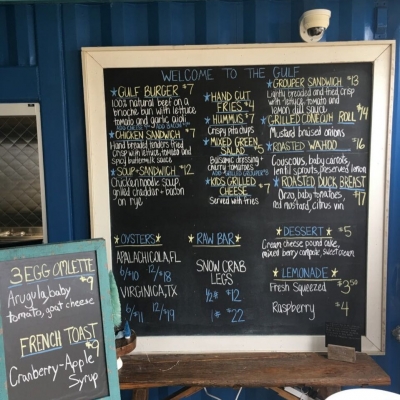 WELCOME TO THE GULF
GULF BURGER $7
100% natural beef on a
brioche bun with lettuce
tomato and garlic aioli
CHICKEN SANDWICH $7
Hand breaded tenders fried
crisp with lettuce, tomato and
spicy buttermilk sauce
SOUP+SANDWICH $12
Chicken noodle soup,
grilled cheddar + bacon
on rye
HAND CUT
FRIES $4
HUMMUS $7
Crispy pita chips
MIXED GREEN
SALAD $5
Balsamic dressing,
cherry tomatoes
KIDS GRILLED
CHEESE $7
Served with fries
GROUPER SANDWICH $13
Lightly breaded and fried crisp
with lettuce, tomato and
lemon dill sauce
GRILLED CONECUH ROLL $14
Mustard braised onions
ROASTED WAHOO $16
Couscous, baby carrots,
lentil sprouts, preserved lemon
ROASTED DUCK BREAST $17
Orzo, baby tomatoes,
red mustard, citrus vin
OYSTERS
APALACHICOLA, FL
6/$10 12/$18
VIRGINICA, TX
6/$11 12/$19
RAW BAR
SNOW CRAB
LEGS
1/2# $12
1# $22
DESSERT $5
Cream cheese pound cake,
mixed berry compote, sweet cream
LEMONADE
Fresh Squeezed $3.50
Raspberry $4
3 EGG OMLETTE
$9
Arugula, baby
tomato, goat cheese
FRENCH TOAST
$9
Cranberry-Apple
Syrup